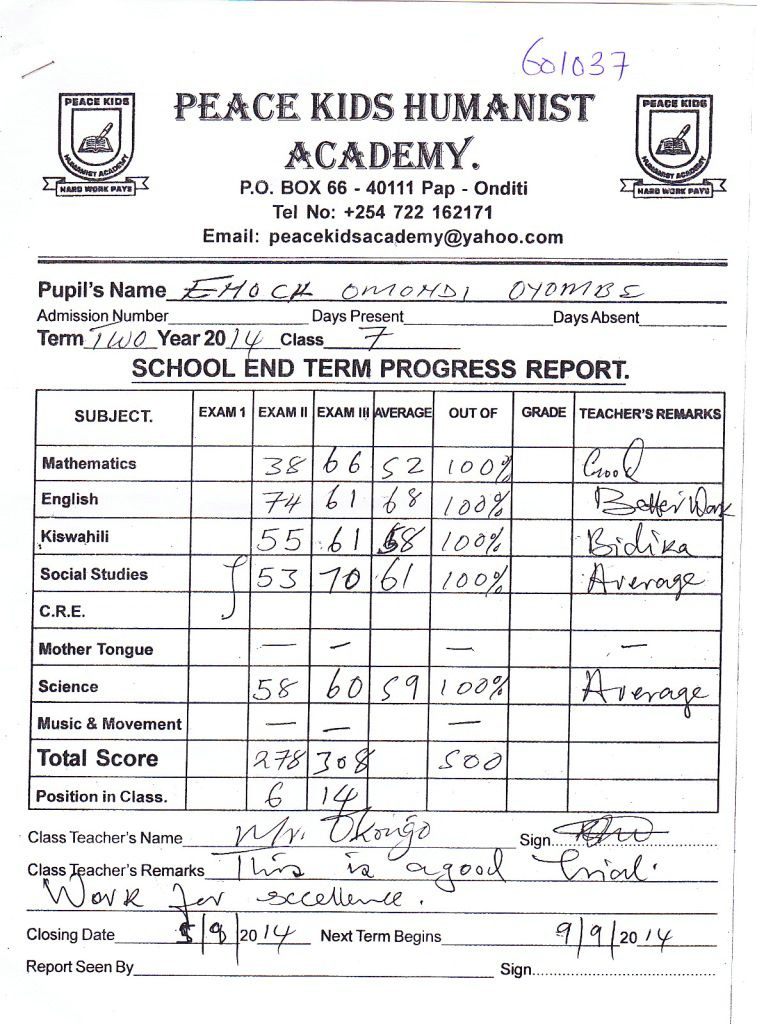 601037
PEACE KIDS
HUMANIST ACADEMY
HARD WORK PAYS
PEACE KIDS HUMANIST
ACADEMY.
PEACE KIDS
HUMANIST ACADEMY
HARD WORK PAYS
P.O. BOX 66 - 40111 Pap - Onditi
Tel No: +254 722 162171
Email: peacekidsacademy@yahoo.com
Pupil's Name ENOCK OMONDI OYOMBE
Admission Number Days Present Days Absent
Term TWO Year 2014 Class 7
SCHOOL END TERM PROGRESS REPORT.
SUBJECT. EXAM 1 EXAM II EXAM III AVERAGE OUT OF GRADE TEACHER'S REMARKS
Mathematics 38 66 52 100% Good
English 74 61 68 100% Better Work
Kiswahili 55 61 58 100% Bidika
Social Studies 53 70 61 100% Average
C.R.E.
Mother Tongue — — — —
Science 58 60 59 100% Average
Music & Movement — — —
Total Score 278 308 500
Position in Class. 6 14
Class Teacher's Name Mr. Okongo Sign
Class Teacher's Remarks This is a good trial.
Work for excellence.
Closing Date 5/8/2014 Next Term Begins 9/9/2014
Report Seen By Sign